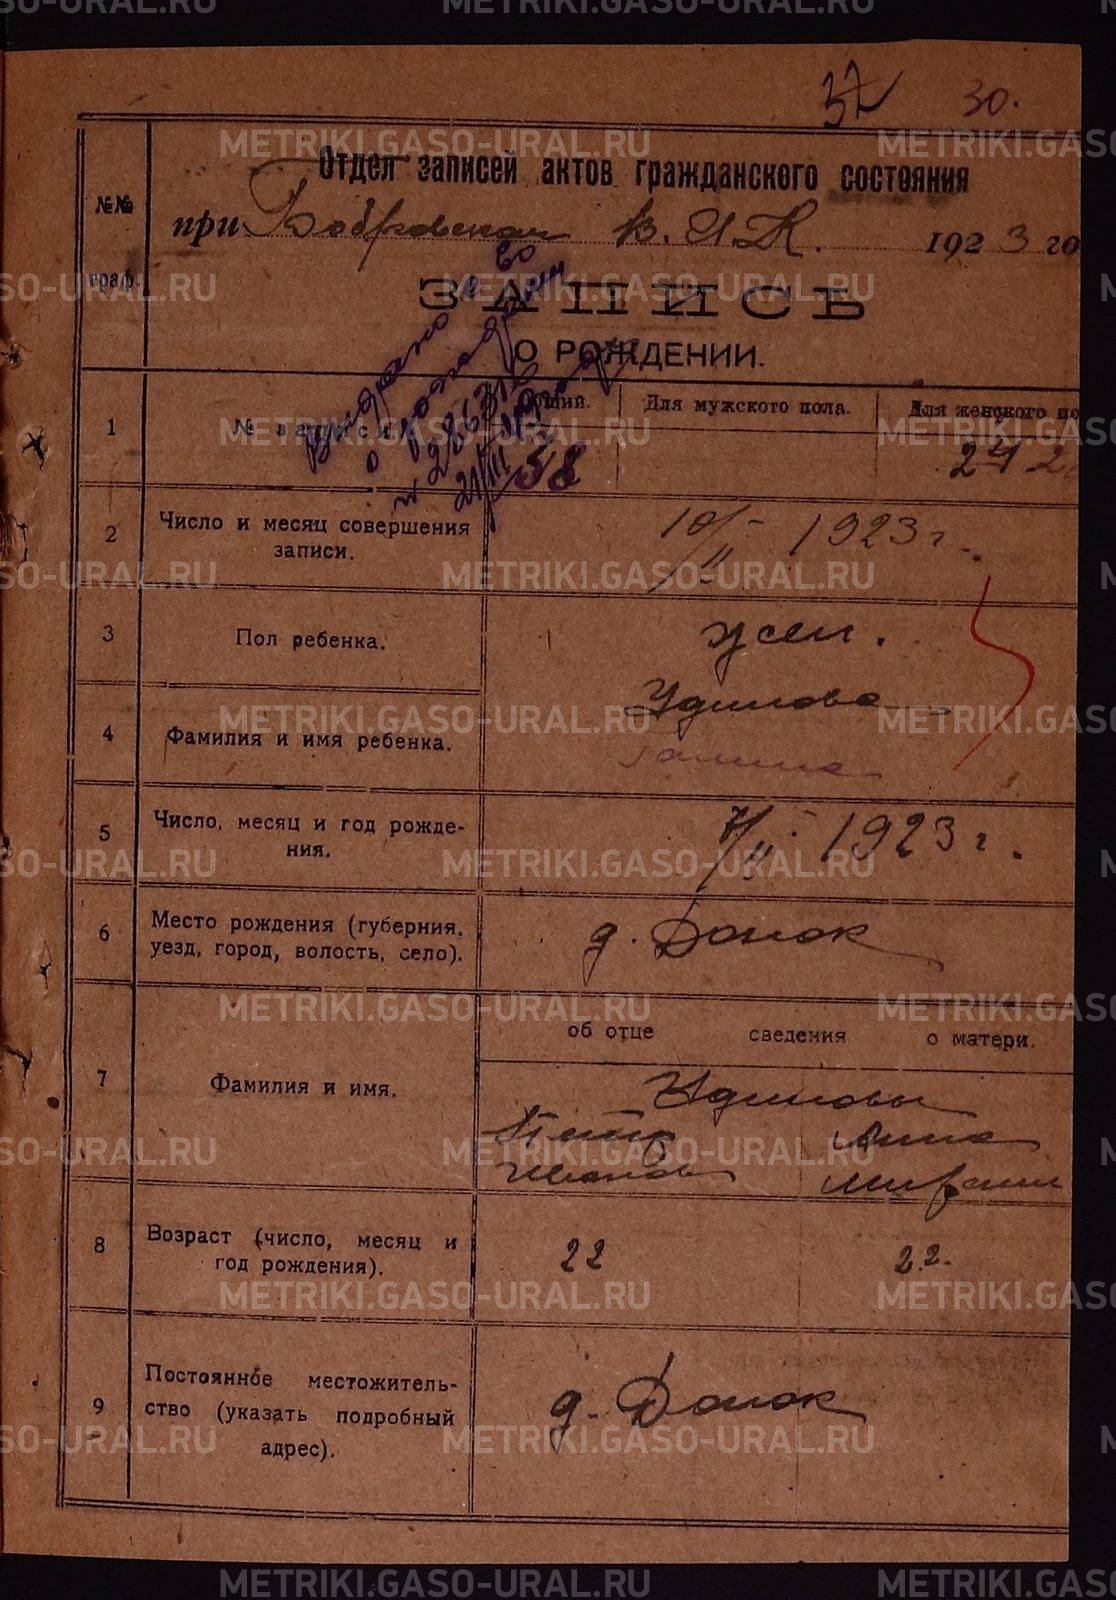 37 30.
Отдел записей актов гражданского состояния
№№ граф.
при Бобровская В.И.К. 1923 го
ЗАПИСЬ
О РОЖДЕНИИ.
Выдано св во
о рождении
№ 286312
21/III
1 № записи Общий. Для мужского пола. Для женского по
58 24
2 Число и месяц совершения
записи.
10/II - 1923 г.
3 Пол ребенка. жен.
4 Фамилия и имя ребенка. Удилова
Галина
5 Число, месяц и год рожде-
ния.
7/II 1923 г.
6 Место рождения (губерния,
уезд, город, волость, село).
д.
об отце сведения о матери.
7 Фамилия и имя. Удиловы
Петр Анна
Иванов
8 Возраст (число, месяц и
год рождения).
22 22.
9 Постоянное местожитель-
ство (указать подробный
адрес).
д.
METRIKI.GASO-URAL.RU